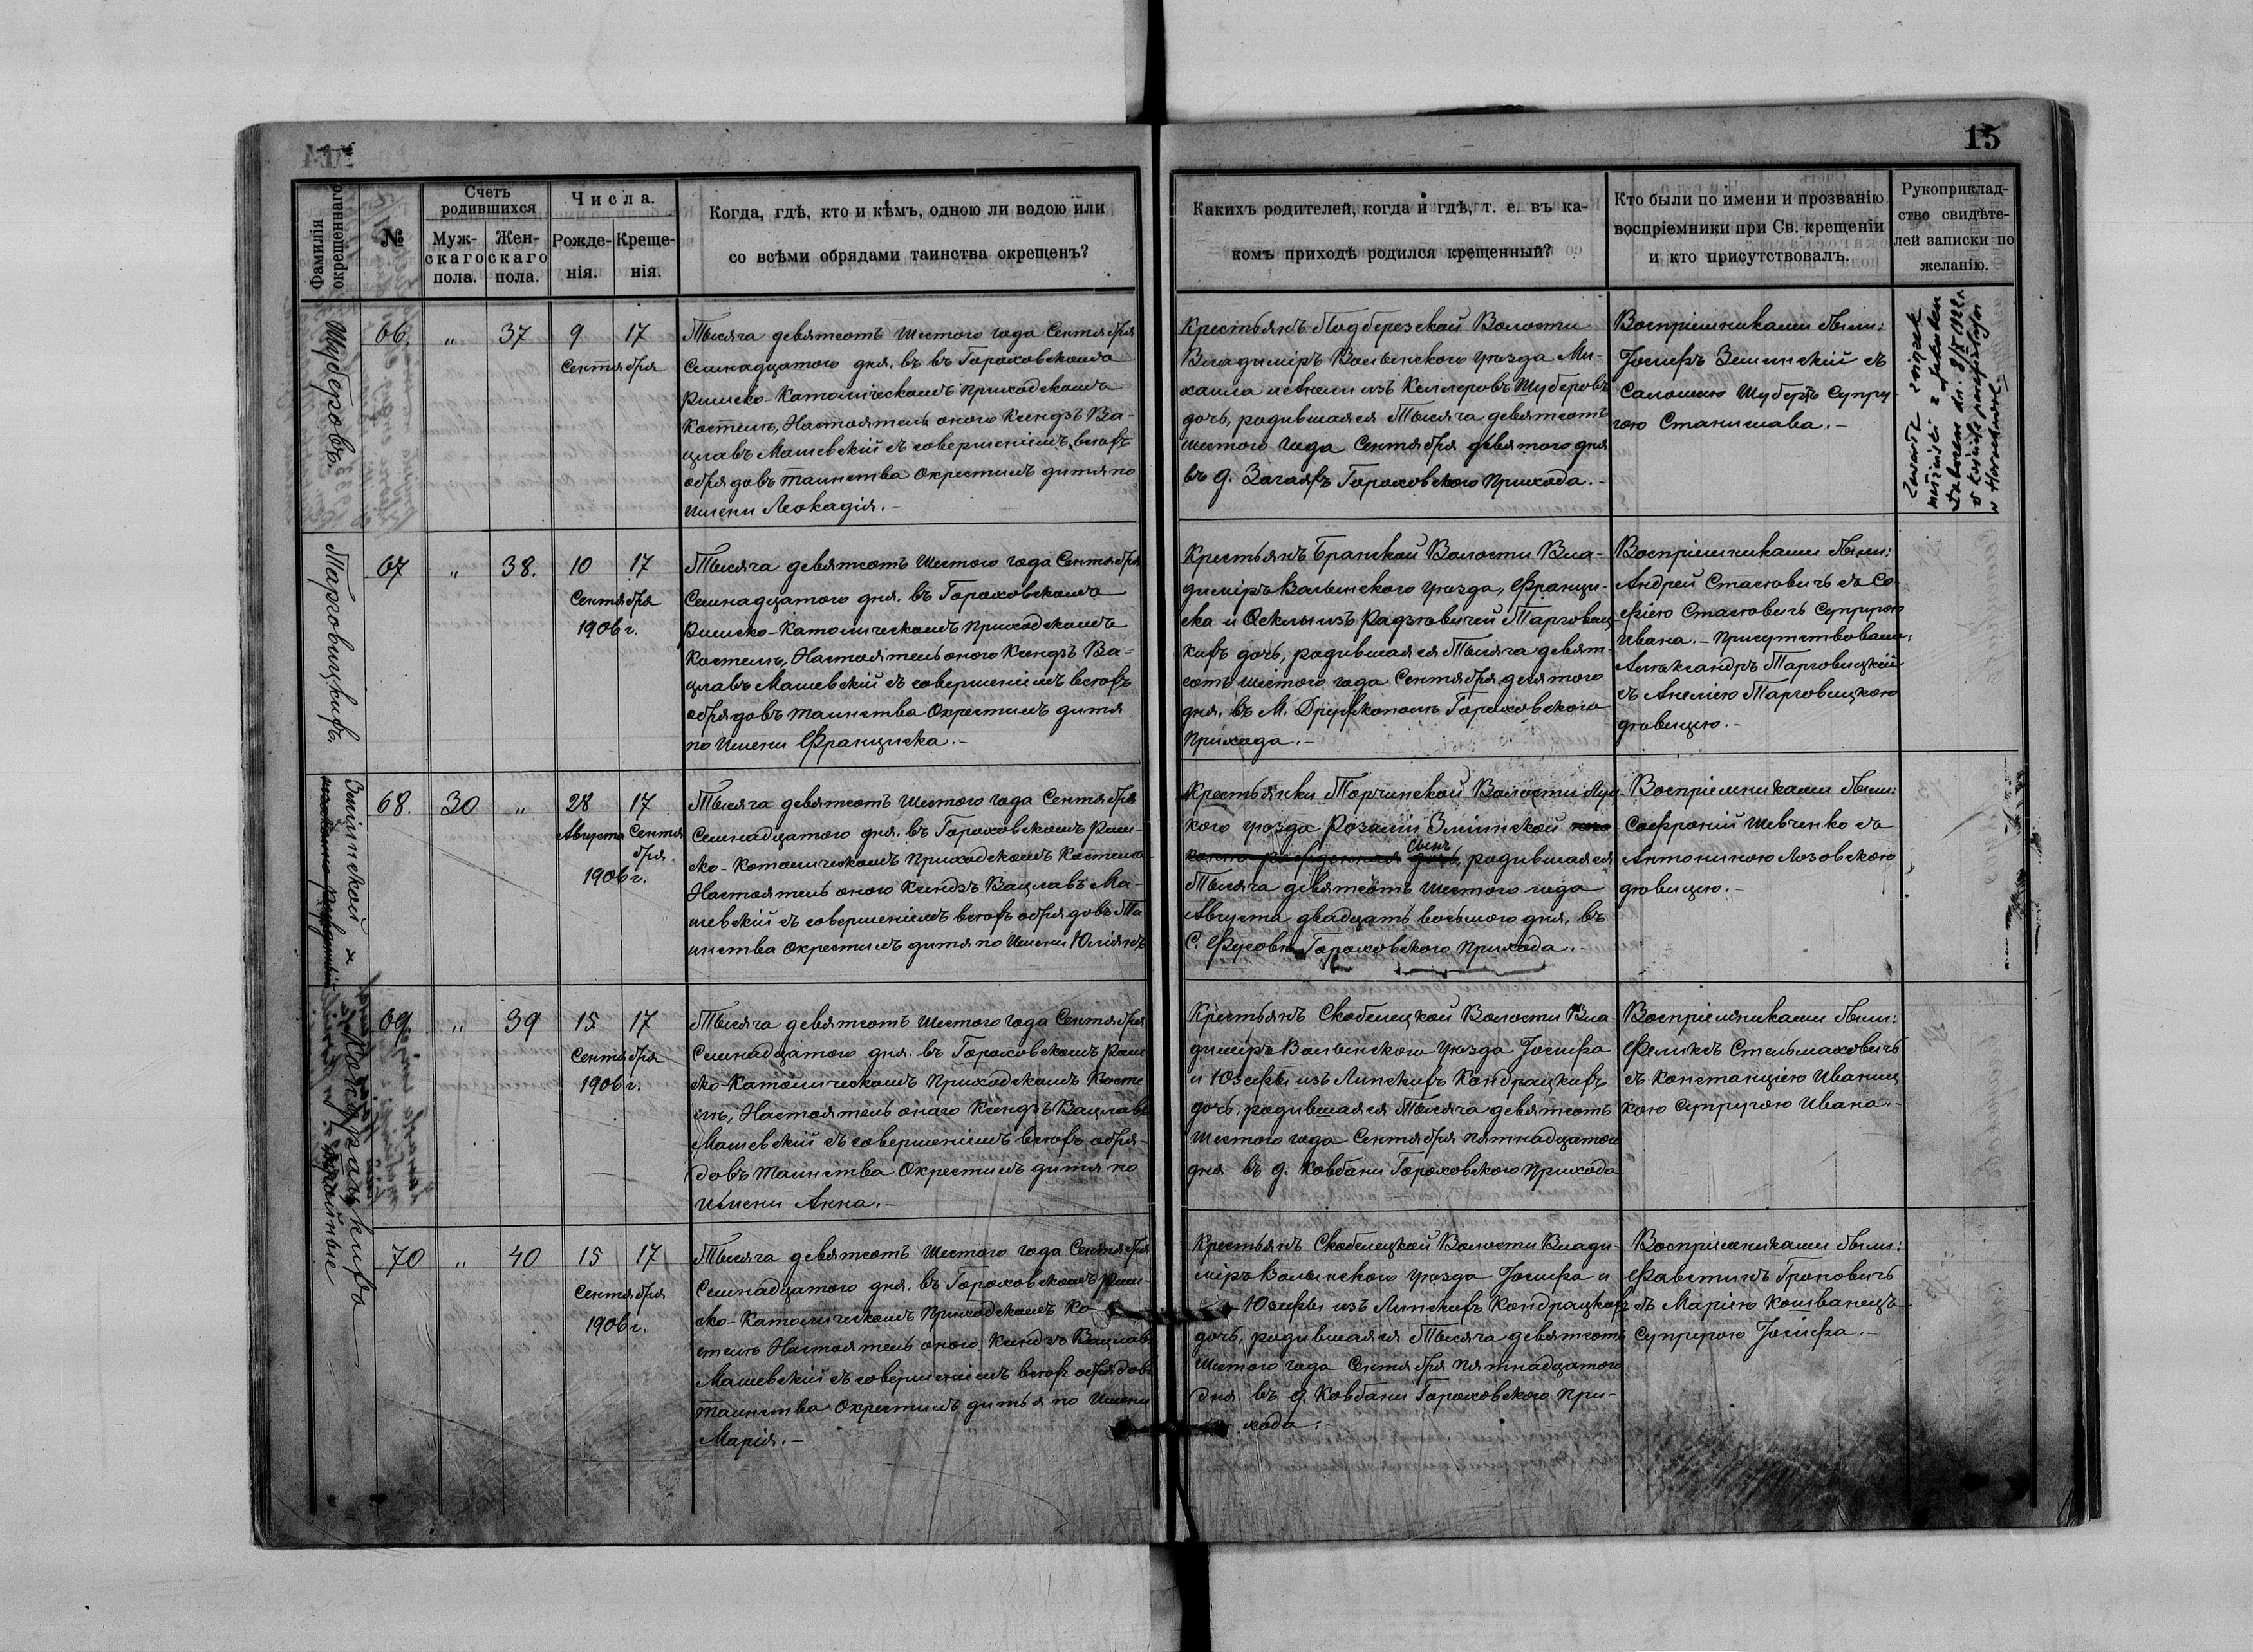 15
Фамилія окрещеннаго
№
Счетъ родившихся
Муж-скаго пола.
Жен-скаго пола.
Числа.
Рожде-нія.
Креще-нія.
Когда, гдѣ, кто и кѣмъ, одною ли водою или
со всѣми обрядами таинства окрещенъ?
Какихъ родителей, когда и гдѣ, т. е. въ ка-
комъ приходѣ родился крещенный?
Кто были по имени и прозванію
воспріемники при Св. крещеніи
и кто присутствовалъ.
Рукоприклад-
ство свидѣте-
лей записки по
желанію.
Шуберовъ.
66. " 37 9 17
Сентября
Тысяча девятсотъ шестого года Сентября
Семнадцатого дня. въ въ Гороховскомъ
Римско-Католическомъ Приходскомъ
Костелѣ, Настоятель оного Ксендзъ Ва-
цлавъ Машевскій съ совершеніемъ всѣхъ
обрядовъ таинства окрестилъ дитя по
имени Леокадія.-
Крестьянъ Подберезской Волости
Владиміръ Волынского уѣзда Ми-
хаила и Анели изъ Келлеровъ Шуберовъ
дочь, родившаяся Тысяча девятсотъ
шестого года Сентября девятого дня
въ д. Загаяхъ Гороховского Прихода.-
Воспріемниками были:
Іосифъ Зелинскій съ
Саломею Шубертъ Супру-
гою Станислава.-
Zawarła związek
małżeński z
dn. 8/X 1922 r.
w kościele parafialnym
w Horochowie
Тарговицкихъ.
67 " 38. 10 17
Сентября
1906 г.
Тысяча девятсотъ шестого года Сентября
Семнадцатого дня. въ Гороховскомъ
Римско-Католическомъ Приходскомъ
Костелѣ, Настоятель оного Ксендзъ Ва-
цлавъ Машевскій съ совершеніемъ всѣхъ
обрядовъ таинства окрестилъ дитя
по имени Франциска.-
Крестьянъ Бранской Волости Вла-
диміръ Волынского уѣзда, Францис-
ска и Феклы изъ Радзѣвичей Тарговиц-
кихъ дочь, родившаяся Тысяча девят-
сотъ шестого года Сентября десятого
дня. въ М. Дружкополь Гороховского
Прихода.-
Воспріемниками были:
Андрей Стасѣвичъ съ Со-
фіею Стасѣвичъ супругою
Ивана.- Присутствовали:
Александръ Тарговицкій
съ Анеліею Тарговицкою
дѣвицею.-
Зелинской
68. 30 " 28 17
Августа Сентя
бря.
1906 г.
Тысяча девятсотъ шестого года Сентября
Семнадцатого дня. въ Гороховскомъ Рим-
ско-Католическомъ Приходскомъ Костелѣ
Настоятель оного Ксендзъ Вацлавъ Ма-
шевскій съ совершеніемъ всѣхъ обрядовъ Та
инства окрестилъ дитя по имени Юліянъ
Крестьянки Торчинской Волости Луц
кого уѣзда Розаліи Зелинской
сынъ родившаяся
Тысяча девятсотъ шестого года
Августа двадцать восьмого дня. въ
С. Фусовъ Гороховского Прихода.-
Воспріемниками были:
Софроній Шевченко съ
Антониною Лозовскою
дѣвицею.-
Кондрацкихъ
69. " 39 15 17
Сентября
1906 г.
Тысяча девятсотъ шестого года Сентября
Семнадцатого дня. въ Гороховскомъ Рим
ско-Католическомъ Приходскомъ Косте
лѣ, Настоятель оного Ксендзъ Вацлавъ
Машевскій съ совершеніемъ всѣхъ обря-
довъ таинства окрестилъ дитя по
имени Анна.-
Крестьянъ Скобелецкой Волости Вла-
диміръ Волынского уѣзда Іосифа
и Юзефы изъ Липскихъ Кондрацкихъ
дочь, родившаяся Тысяча девятсотъ
шестого года Сентября пятнадцатого
дня въ д. Ковбани Гороховского Прихода
Воспріемниками были:
Феликсъ Стельмаховичъ
съ Констанціею Иваниц
кою супругою Ивана.-
70 " 40 15 17
Сентября
1906 г.
Тысяча девятсотъ шестого года Сентября
Семнадцатого дня. въ Гороховскомъ Рим-
ско-Католическомъ Приходскомъ Ко-
стелѣ Настоятель оного Ксендзъ Вацлавъ
Машевскій съ совершеніемъ всѣхъ обрядовъ
таинства окрестилъ дитья по имени
Марія.-
Крестьянъ Скобелецкой Волости Влади-
міръ Волынского уѣзда Іосифа и
Юзефы изъ Липскихъ Кондрацкихъ
дочь, родившаяся Тысяча девятсотъ
шестого года Сентября пятнадцатого
дня. въ д. Ковбани Гороховского При-
хода.-
Воспріемниками были:
Фавстинъ Гроховичъ
съ Маріею Кошванецъ
Супругою Іосифа.-